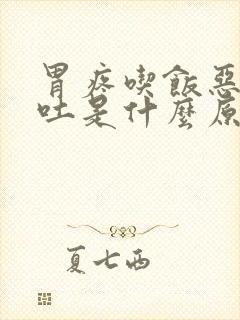 胃疼喫飯惡
吐是什麼原
夏七西